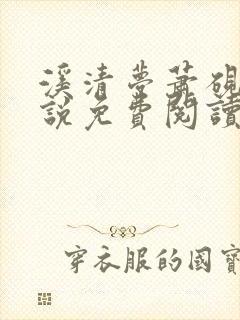 溪清夢蕭硯
說免費閱讀
穿衣服的國寶